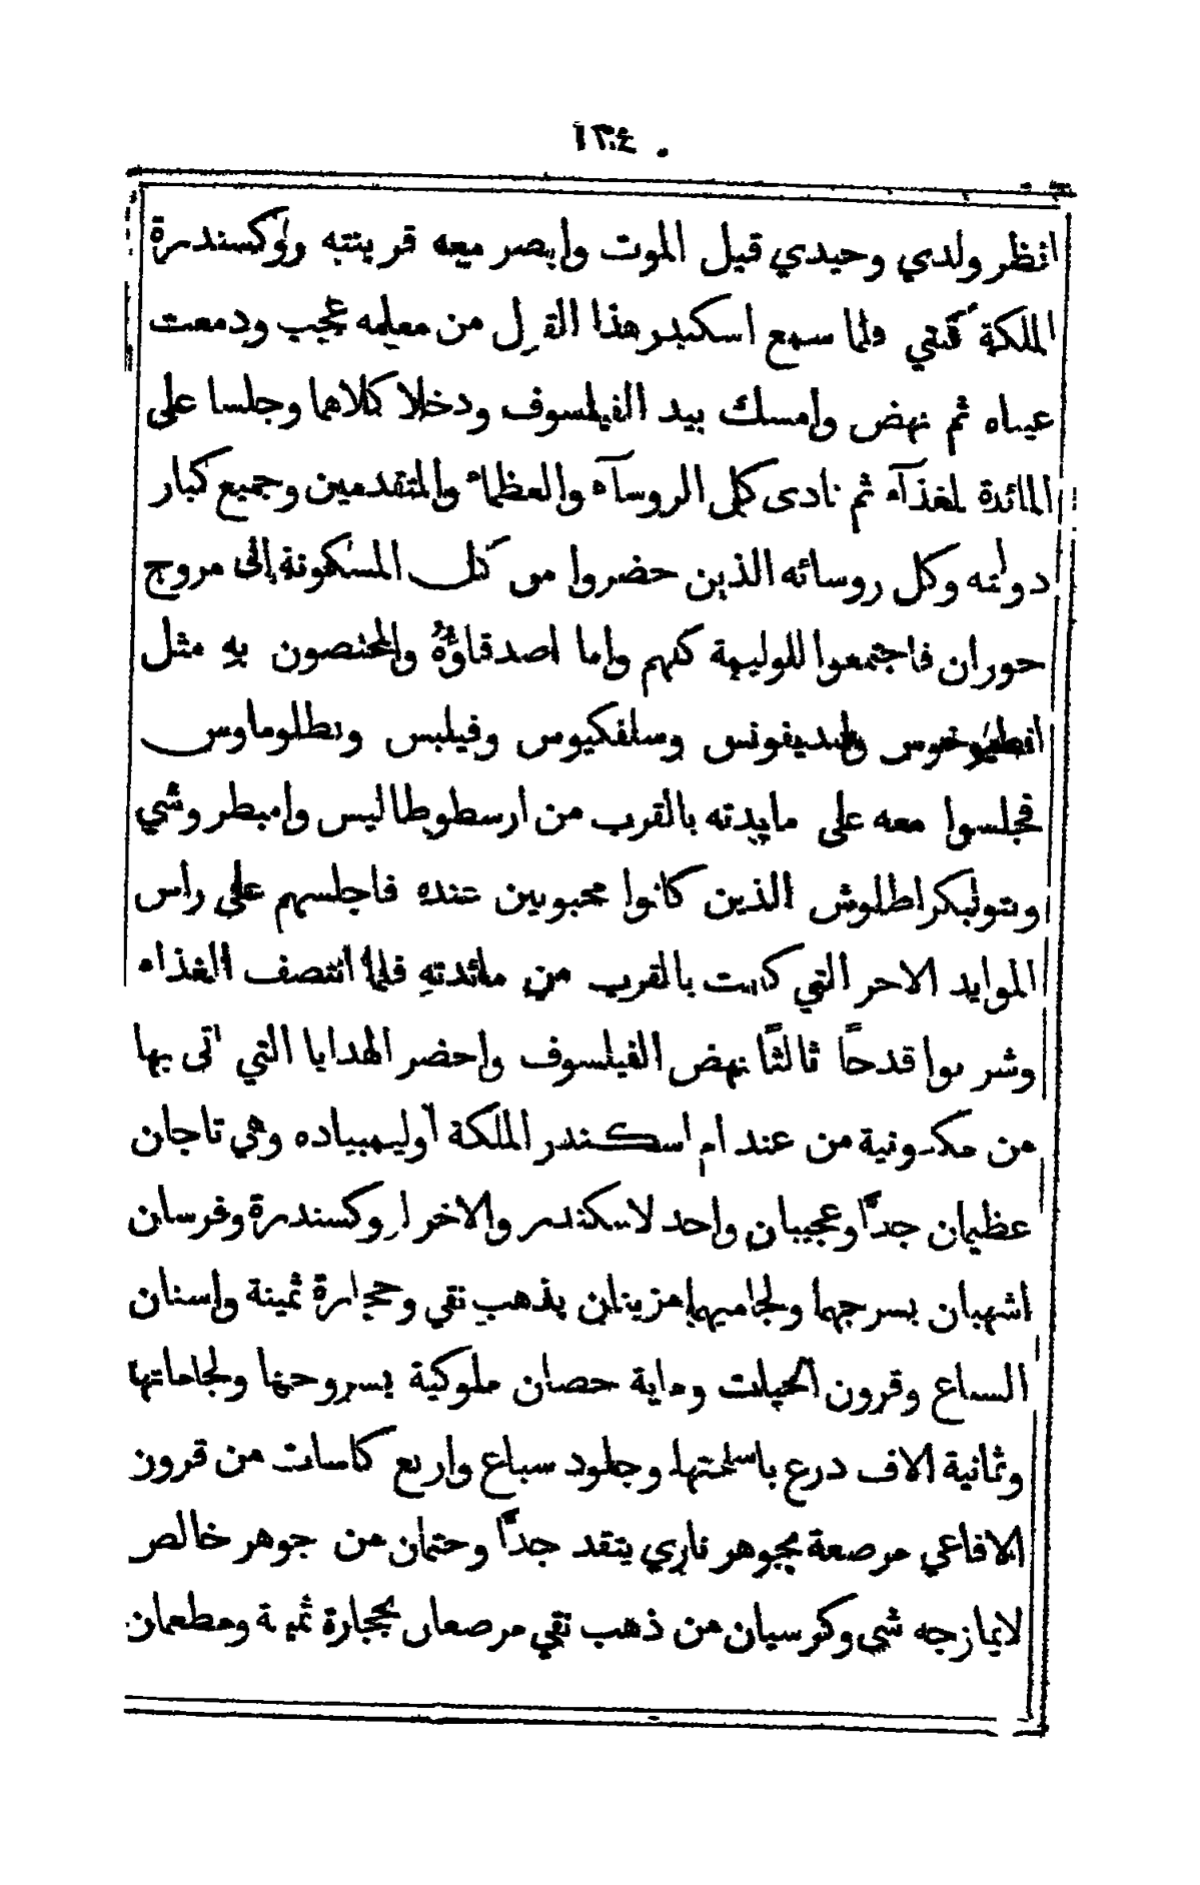 ١٣٤
انظر ولدي وحيدي قبل الموت وابصر معه قرينته روكسندرة
الملكة كنتي فلما سمع اسكندر هذا القول من معلمه عجب ودمعت
عيناه ثم نهض وامسك بيد الفيلسوف ودخلا كلاهما وجلسا على
المائدة لغذآء ثم نادى كل الروسآء والعظماء والمتقدمين وجميع كبار
دولته وكل روسائه الذين حضروا من كل المسكونة الى مروج
حوران فاجتمعوا للوليمة كلهم واما اصدقاؤهُ والمختصون بهِ مثل
انطيوخوس وانديفونس وسلفكيوس وفيلبس وبطلوماوس
فجلسوا معه على مايدته بالقرب من ارسطوطاليس وامبطروشي
وبتوليكراطلوش الذين كانوا محبوبين عنده فاجلسهم على راس
الموايد الاخر التي كانت بالقرب من مائدتهِ فلما انتصف الغذاء
وشربوا قدحاً ثالثاً نهض الفيلسوف واحضر الهدايا التي اتى بها
من مكدونية من عند ام اسكندر الملكة اوليمبياده وهي تاجان
عظيمان جداً وعجيبان واحد لاسكندر والاخر لروكسندرة وفرسان
اشهبان بسرجهما ولجاميهما مزينان بذهب نقي وحجارة ثمينة واسنان
السباع وقرون الحيات وماية حصان ملوكية بسروجها ولجاماتها
وثمانية الاف درع باسلحتها وجلود سباع واربع كاسات من قرون
الافاعي مرصعة بجوهر ناري يتقد جداً وختمان من جوهر خالص
لايمازجه شي وكرسيان من ذهب نقي مرصعان بحجارة ثمينة ومطعمان